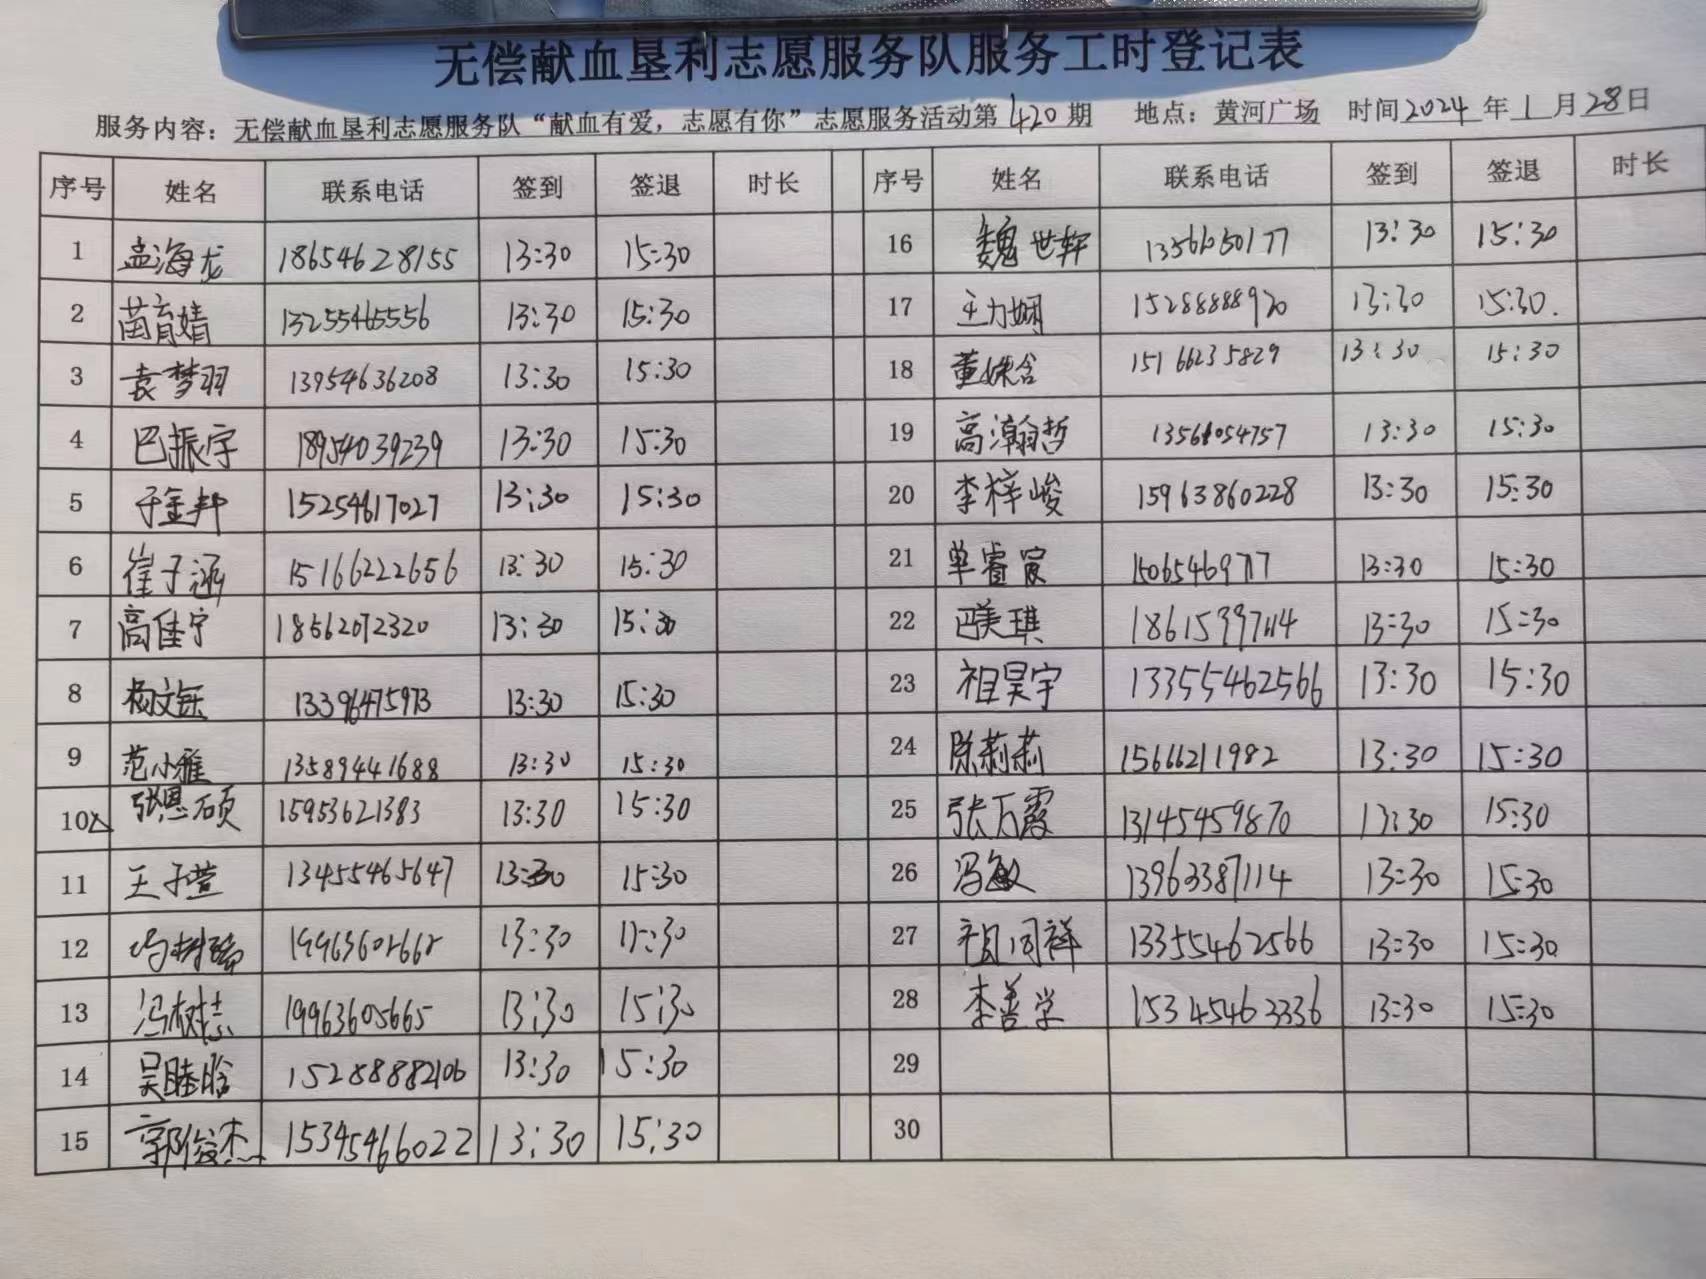 无偿献血垦利志愿服务队服务工时登记表
服务内容：无偿献血垦利志愿服务队“献血有爱，志愿有你”志愿服务活动第420期 地点：黄河广场 时间2024年1月28日
序号 姓名 联系电话 签到 签退 时长 序号 姓名 联系电话 签到 签退 时长
1 孟海龙 18654628155 13:30 15:30 16 魏世轩 13:30 15:30
2 苗育婧 13255465556 13:30 15:30 17 王力娴 15288888920 13:30 15:30.
3 袁梦羽 13954636208 13:30 15:30 18 董姝含 15166235829 13:30 15:30
4 巴振宇 18954039239 13:30 15:30 19 高瀚哲 13561054757 13:30 15:30
5 于金邦 15254617027 13:30 15:30 20 李梓峻 15963860228 13:30 15:30
6 崔子涵 15166222656 13:30 15:30 21 单睿宸 13:30 15:30
7 高佳宁 18562072320 13:30 15:30 22 巴美琪 13:30 15:30
8 杨文钰 13396475973 13:30 15:30 23 祖昊宇 13355462566 13:30 15:30
9 范小雅 13589441688 13:30 15:30 24 陈莉莉 15666211982 13:30 15:30
10 张恩硕 15953621383 13:30 15:30 25 张万霞 13145459870 13:30 15:30
11 王子萱 13455465647 13:30 15:30 26 冯敏 13963387114 13:30 15:30
12 13:30 15:30 27 13355462566 13:30 15:30
13 冯树志 19963605665 13:30 15:30 28 李善学 15345463336 13:30 15:30
14 吴睦晗 15288882106 13:30 15:30 29
15 郭俊杰 15345466022 13:30 15:30 30